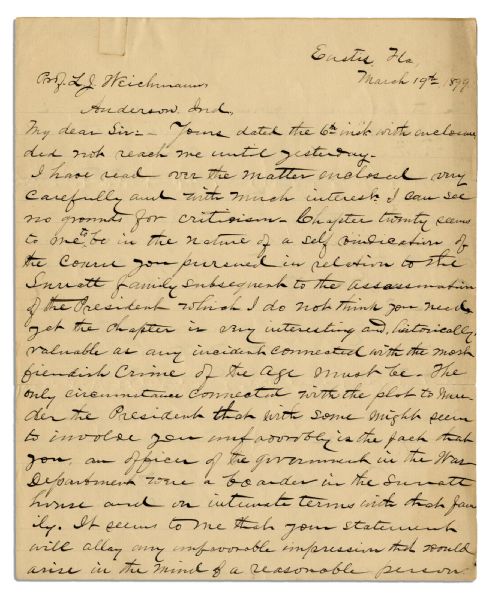 Eustis Fla
March 19th 1899
Prof. L. J. Weichmann,
Anderson, Ind.
My dear Sir:- Yours dated the 6th inst. with enclosure
did not reach me until yesterday-
I have read over the matter enclosed very
carefully and with much interest. I can see
no grounds for criticism- Chapter twenty seems
to me to be in the nature of a self vindication of
the course you pursued in relation to the
Surratt family subsequent to the assassination
of the President which I do not think you need,
yet the chapter is very interesting and, historically,
valuable as any incident connected with the most
fiendish Crime of the age must be- The
only circumstance connected with the plot to mur-
der the President that with some might seem
to involve you unfavorably is the fact that
you, an officer of the government in the War
Department were a boarder in the Surratt
house and on intimate terms with that fam
ily. It seems to me that your statement
will allay any unfavorable impression that would
arise in the mind of a reasonable person